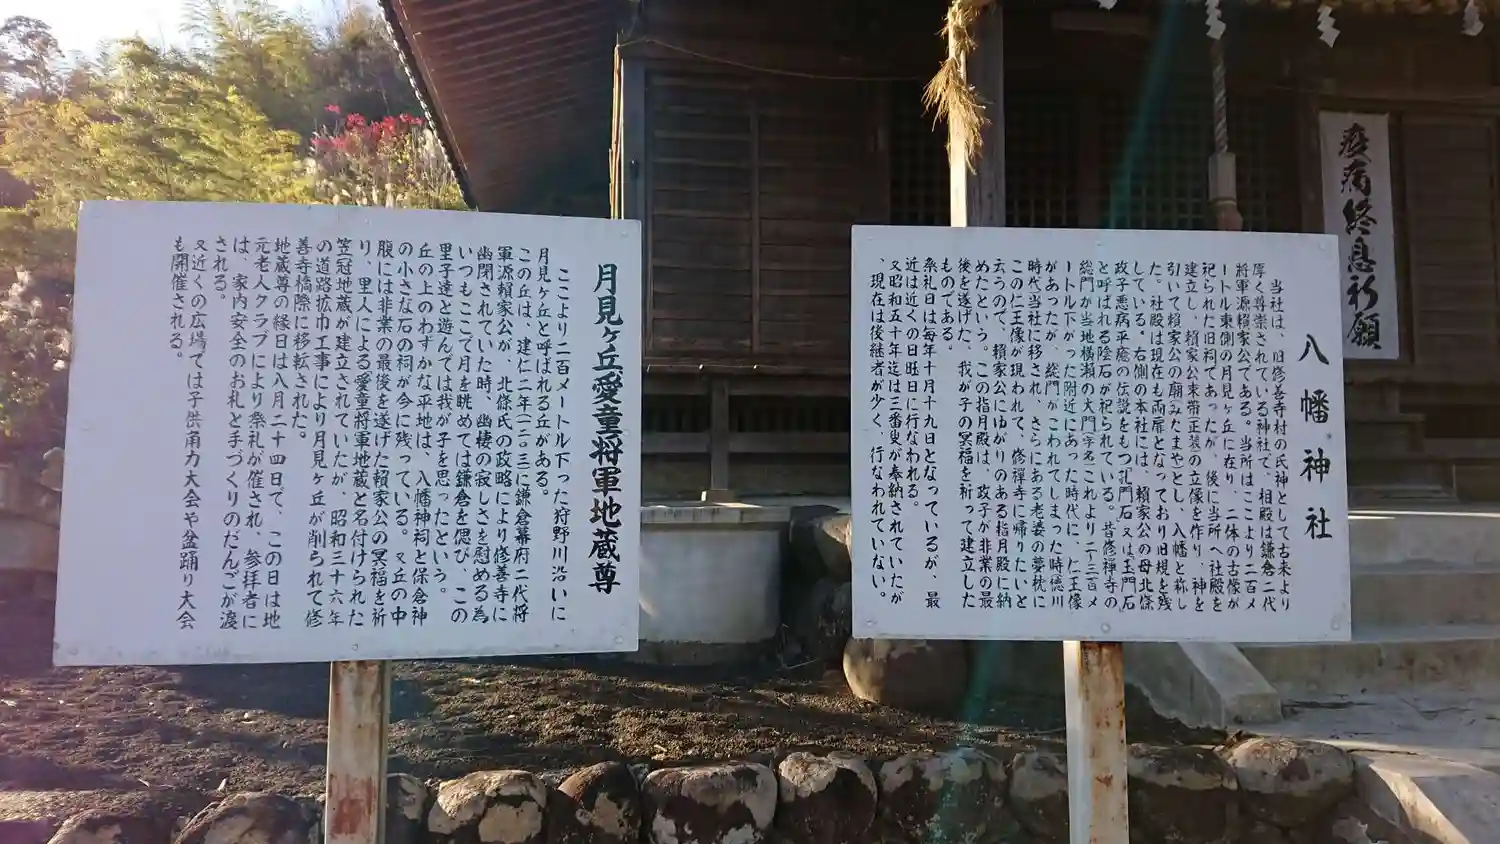 八幡神社
当社は、旧修善寺村の氏神として古来より
厚く尊崇されている神社で、相殿は鎌倉二代
将軍源頼家公である。当所はここより二百メ
ートル東側の月見ヶ丘に在り、二体の古像が
祀られた旧祠であったが、後に当所へ社殿を
建立し、頼家公束帯正装の立像を作り、神を
引いて頼家公の廟(みたまや)とし、八幡と称し
た。社殿は現在も両扉となっており旧規を残
している。右側の本社には、頼家公の母北條
政子悪病平癒の伝説をもつ孔門石又は玉門石
と呼ばれる陰石が祀られている。昔修禅寺の
総門が当地横瀬の大門(字名)これより二・三百メ
ートル下がった附近にあった時代に、仁王像
があったが、総門がこわれてしまった時徳川
時代当社に移され、さらにある老婆の夢枕に
この仁王像が現われて、修禅寺に帰りたいと
云うので、頼家公にゆかりのある指月殿に納
めたという。この指月殿は、政子が非業の最
後を遂げた、我が子の冥福を祈って建立した
ものである。
祭礼日は毎年十月十九日となっているが、最
近は近くの日旺日に行なわれる。
又昭和五十年迄は三番叟が奉納されていたが
、現在は後継者が少く、行なわれていない。
月見ヶ丘愛童将軍地蔵尊
ここより二百メートル下った狩野川沿いに
月見ヶ丘と呼ばれる丘がある。
この丘は、建仁二年(一二〇三)に鎌倉幕府二代将
軍源頼家公が、北條氏の政略により修善寺に
幽閉されていた時、幽棲の寂しさを慰める為
いつもここで月を眺めては鎌倉を偲び、この
里子達と遊んでは我が子を思ったという。
丘の上のわずかな平地は、八幡神祠と保倉神
の小さな石の祠が今に残っている。又丘の中
腹には非業の最後を遂げた頼家公の冥福を祈
り、里人による愛童将軍地蔵と名付けられた
笠冠地蔵が建立されていたが、昭和三十六年
の道路拡巾工事により月見ヶ丘が削られて修
善寺橋際に移転された。
地蔵尊の縁日は八月二十四日で、この日は地
元老人クラブにより祭礼が催され、参拝者に
は、家内安全のお札と手づくりのだんごが渡
される。
又近くの広場では子供角力大会や盆踊り大会
も開催される。
疫病終息祈願